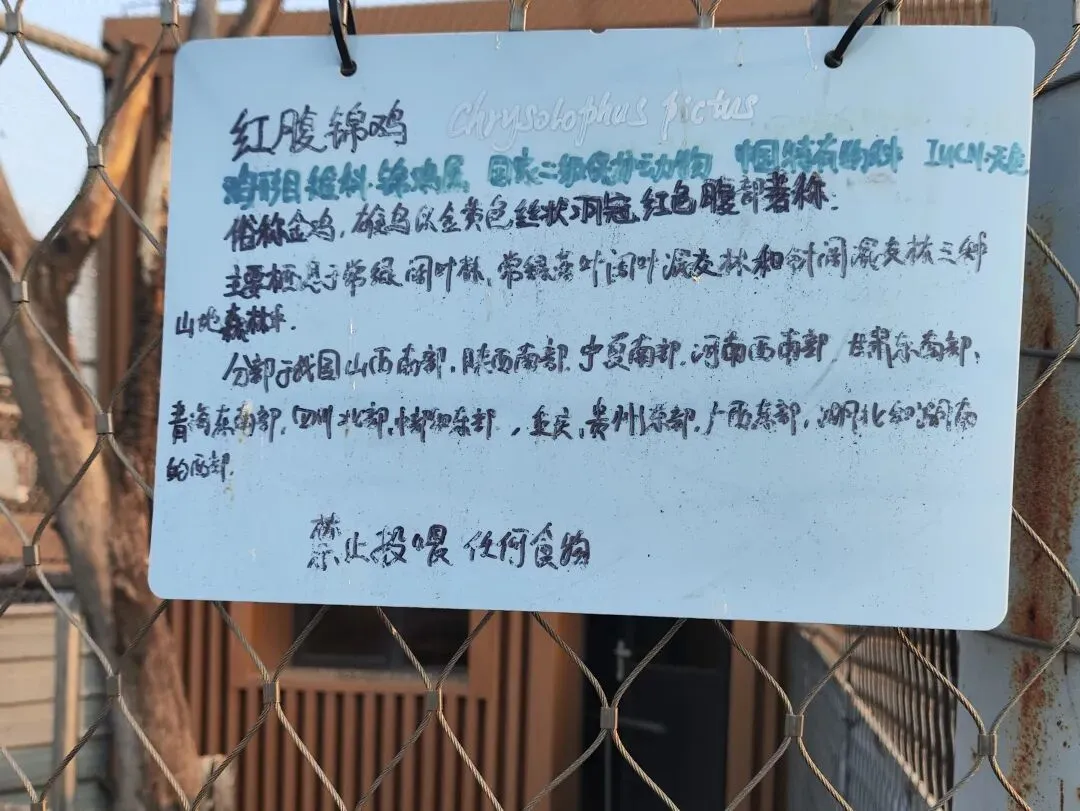 红腹锦鸡 Chrysolophus pictus
鸡形目.雉科.锦鸡属 国家二级保护动物 中国特有物种 IUCN:无危
俗称金鸡,雄鸟以金黄色丝状羽冠,红色腹部著称.
主要栖息于常绿阔叶林,常绿落叶阔叶混交林和针阔混交林三种
山地森林中.
分部于我国山西南部,陕西南部,宁夏南部,河南西南部,甘肃东南部,
青海东南部,四川北部,中部和东部,重庆,贵州东部,广西东部,湖北和湖南
的西部.
禁止投喂 任何食物